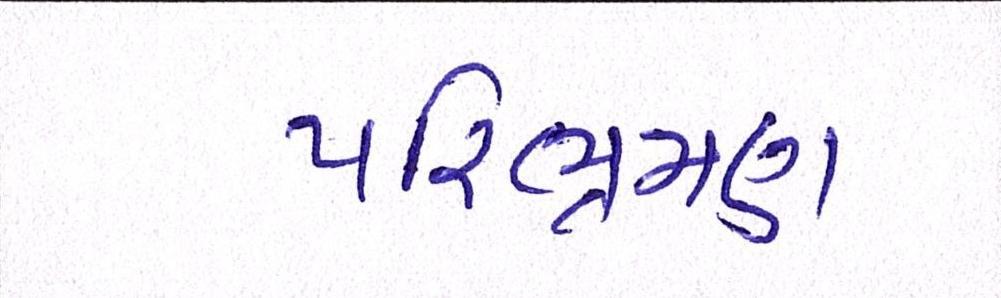 પરિભ્રમણ